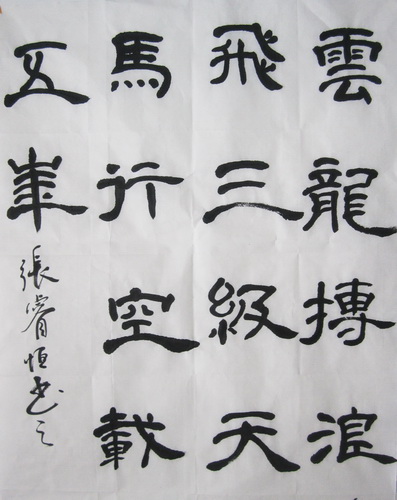 雲龍搏浪
飛三級天
馬行空載
五
張睿恒书之